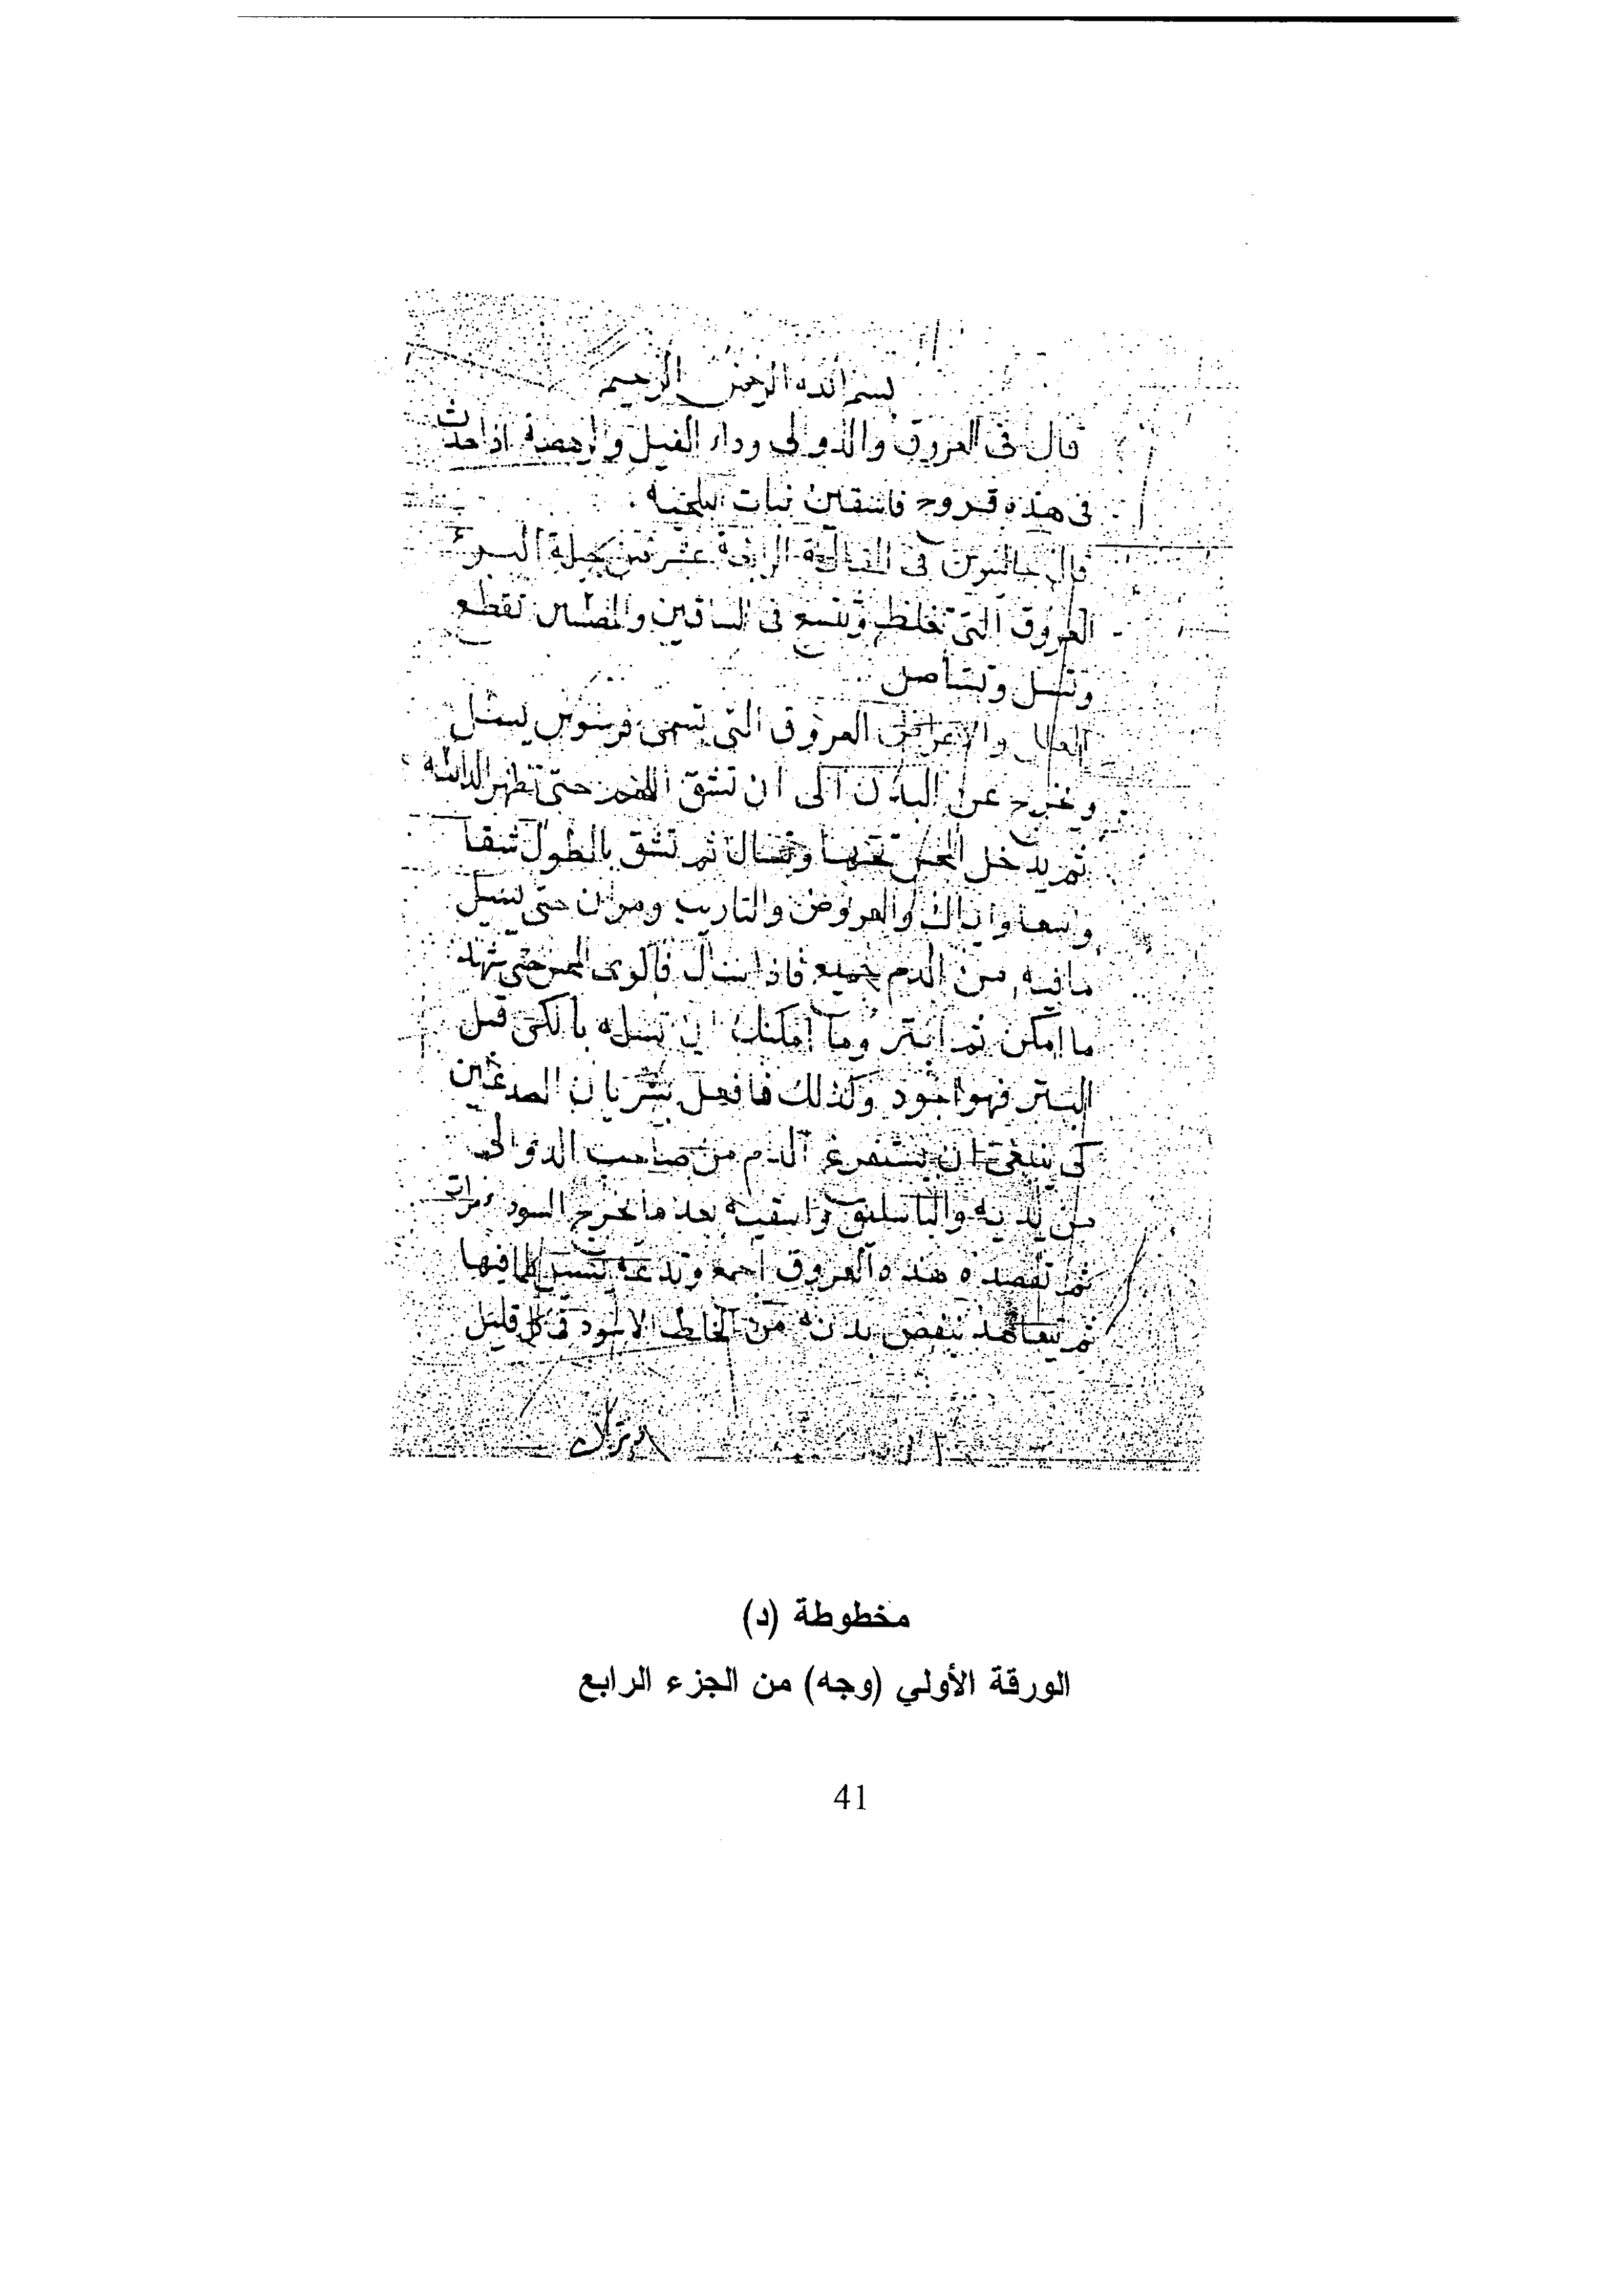 بسم الله الرحمن الرحيم
قال فى العروق والدوالى وداء الفيل واذا حدث
فى هذه قروح فاسقين نبات
قال جالينوس فى المقالة الرابعة عشر من حيلة البرء
العروق التى تغلظ وتتسع فى الساقين تقطع
وتسل وتستاصل
العلل والاعراض العروق التى تسمى يسيل
ويخرج عن البدن الى ان تشق حتى تظهر الدالية
ثم يدخل المجس تحتها وتشال ثم تشق بالطول شقا
واسعا واياك والعروض والتاريب حتى يسيل
ما فيه من الدم جميع فاذا سال المجس حتى
ما امكن ثم ابتر وما امكنك ان تسله بالكى قبل
البتر فهو اجود وكذلك فافعل بشريان الصدغين
كى ينبغى ان يستفرغ الدم من صاحب الدوالى
من يديه والباسليق واسقيه بعد ما يخرج السوداء مرات
ثم تفصده هذه العروق اجمع وتدعه يسيل كلما فيها
ثم تتعاهد بنفض بدنه من الخلط الاسود فى كل قليل
مخطوطة (د)
الورقة الأولي (وجه) من الجزء الرابع
41